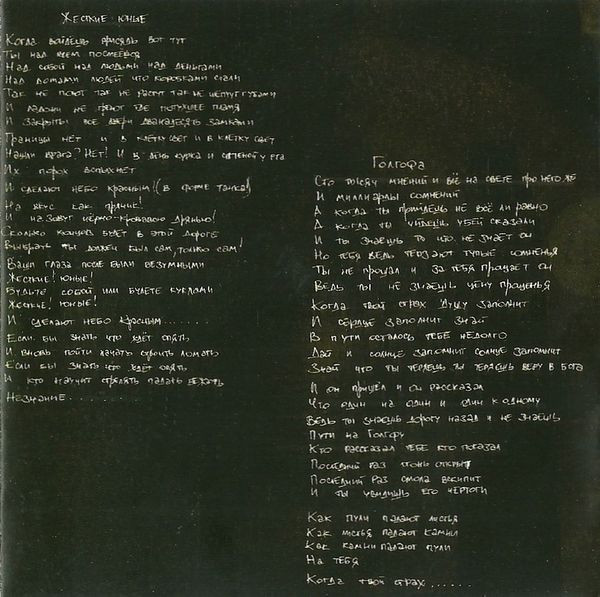 Жесткие юные
Когда войдёшь вот тут
Ты над всем посмеёшься
Над собой над людьми над деньгами
Над домами людей что коробками стали
Так не поют так не растут так не шепчут губами
И ладони не греют где потухшее пламя
И закрыты все двери двенадцать замками
Границы нет и в клетку свет и в клетку свет
Нашли врага? Нет! И в день курка и у рта
Их порох вспыхнет
И сделают небо красным! (в форме танка!)
На вкус как пряник!
И назовут чёрно-кровавою дрянью!
Сколько концов будет в этой дороге
Выбрать ты должен был сам, только сам!
Ваши глаза после были безумными
Жесткие! Юные!
Будьте собой или будете куклами
Жесткие! Юные!
И сделают небо красным.......
Если бы знать что ждёт опять
И вновь пойти начать строить ломать
Если бы знать что ждёт опять
И кто научит стрелять падать бежать
Незнание..........
Голгофа
Сто тысяч мнений и всё на свете про него же
И миллиарды сомнений
А когда ты придёшь не всё ли равно
А когда ты уйдёшь убей сказали
И ты знаешь то что не знает он
Но тебя ведь терзают тупые сомненья
Ты не прощал и за тебя прощает он
Ведь ты не знаешь цену прощенья
Когда твой страх душу заполнит
И сердце заполнит знай
В пути осталось тебе недолго
Дай и солнце запомнит солнце запомнит
Знай что ты теряешь ты теряешь веру в Бога
И он пришёл и он рассказал
Что один на один и один к одному
Ведь ты знаешь дорогу назад и не знаешь
Пути на Голгофу
Кто рассказал тебе кто показал
Последний раз огонь открыт
Последний раз смола вскипит
И ты увидишь его чертоги
Как пули падают листья
Как листья падают камни
Как камни падают пули
На тебя
Когда твой страх......